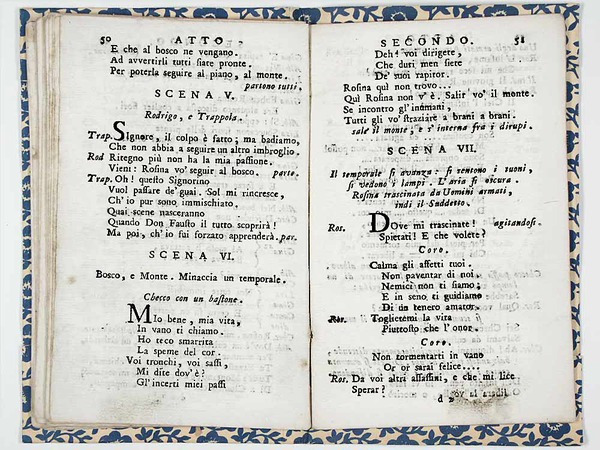 50 ATTO
E che al bosco ne vengano.
Ad avvertirli tutti siate pronte.
Per poterla seguire al piano, al monte.
partono tutti.
SCENA V.
Rodrigo, e Trappola.
Trap. Signore, il colpo è fatto; ma badiamo,
Che non abbia a seguire un altro imbroglio.
Rod Ritegno più non ha la mia passione.
Vieni: Rosina vo' seguir al bosco. parte.
Trap. Oh! questo Signorino
Vuol passare de' guai. Sol mi rincresce,
Ch' io pur sono immischiato.
Quai scene nasceranno
Quando Don Fausto il tutto scoprirà!
Ma poi, ch' io fui forzato apprenderà. par.
SCENA VI.
Bosco, e Monte. Minaccia un temporale.
Checco con un bastone.
MIo bene, mia vita,
In vano ti chiamo.
Ho teco smarrita
La speme del cor.
Voi tronchi, voi sassi,
Mi dite dov' è?
Gl' incerti miei passi
SECONDO. 51
Deh! voi dirigete,
Che duri men siete
De' suoi rapitor.
Rosina quì non trovo...
Quì Rosina non v' è. Salir vo' il monte.
Se incontro gl' inumani,
Tutti gli vo' straziare a brani a brani.
sale il monte, e s' interna fra i dirupi.
SCENA VII.
Il temporale si avanza: si sentono i tuoni,
si vedono i lampi. L' aria si oscura.
Rosina trascinata da Uomini armati,
indi il Suddetto.
Ros. DOve mi trascinate! agitandosi.
Spietati! E che volete?
Coro.
Calma gli affetti tuoi.
Non paventar di noi.
Nemici non ti siamo;
E in seno ti guidiamo
Di un tenero amator.
Ros. Toglietemi la vita
Piuttosto che l' onor.
Coro.
Non tormentarti in vano
Or or sarai felice....
Ros. Da voi altri assassini, e che mi lice
Sperar?